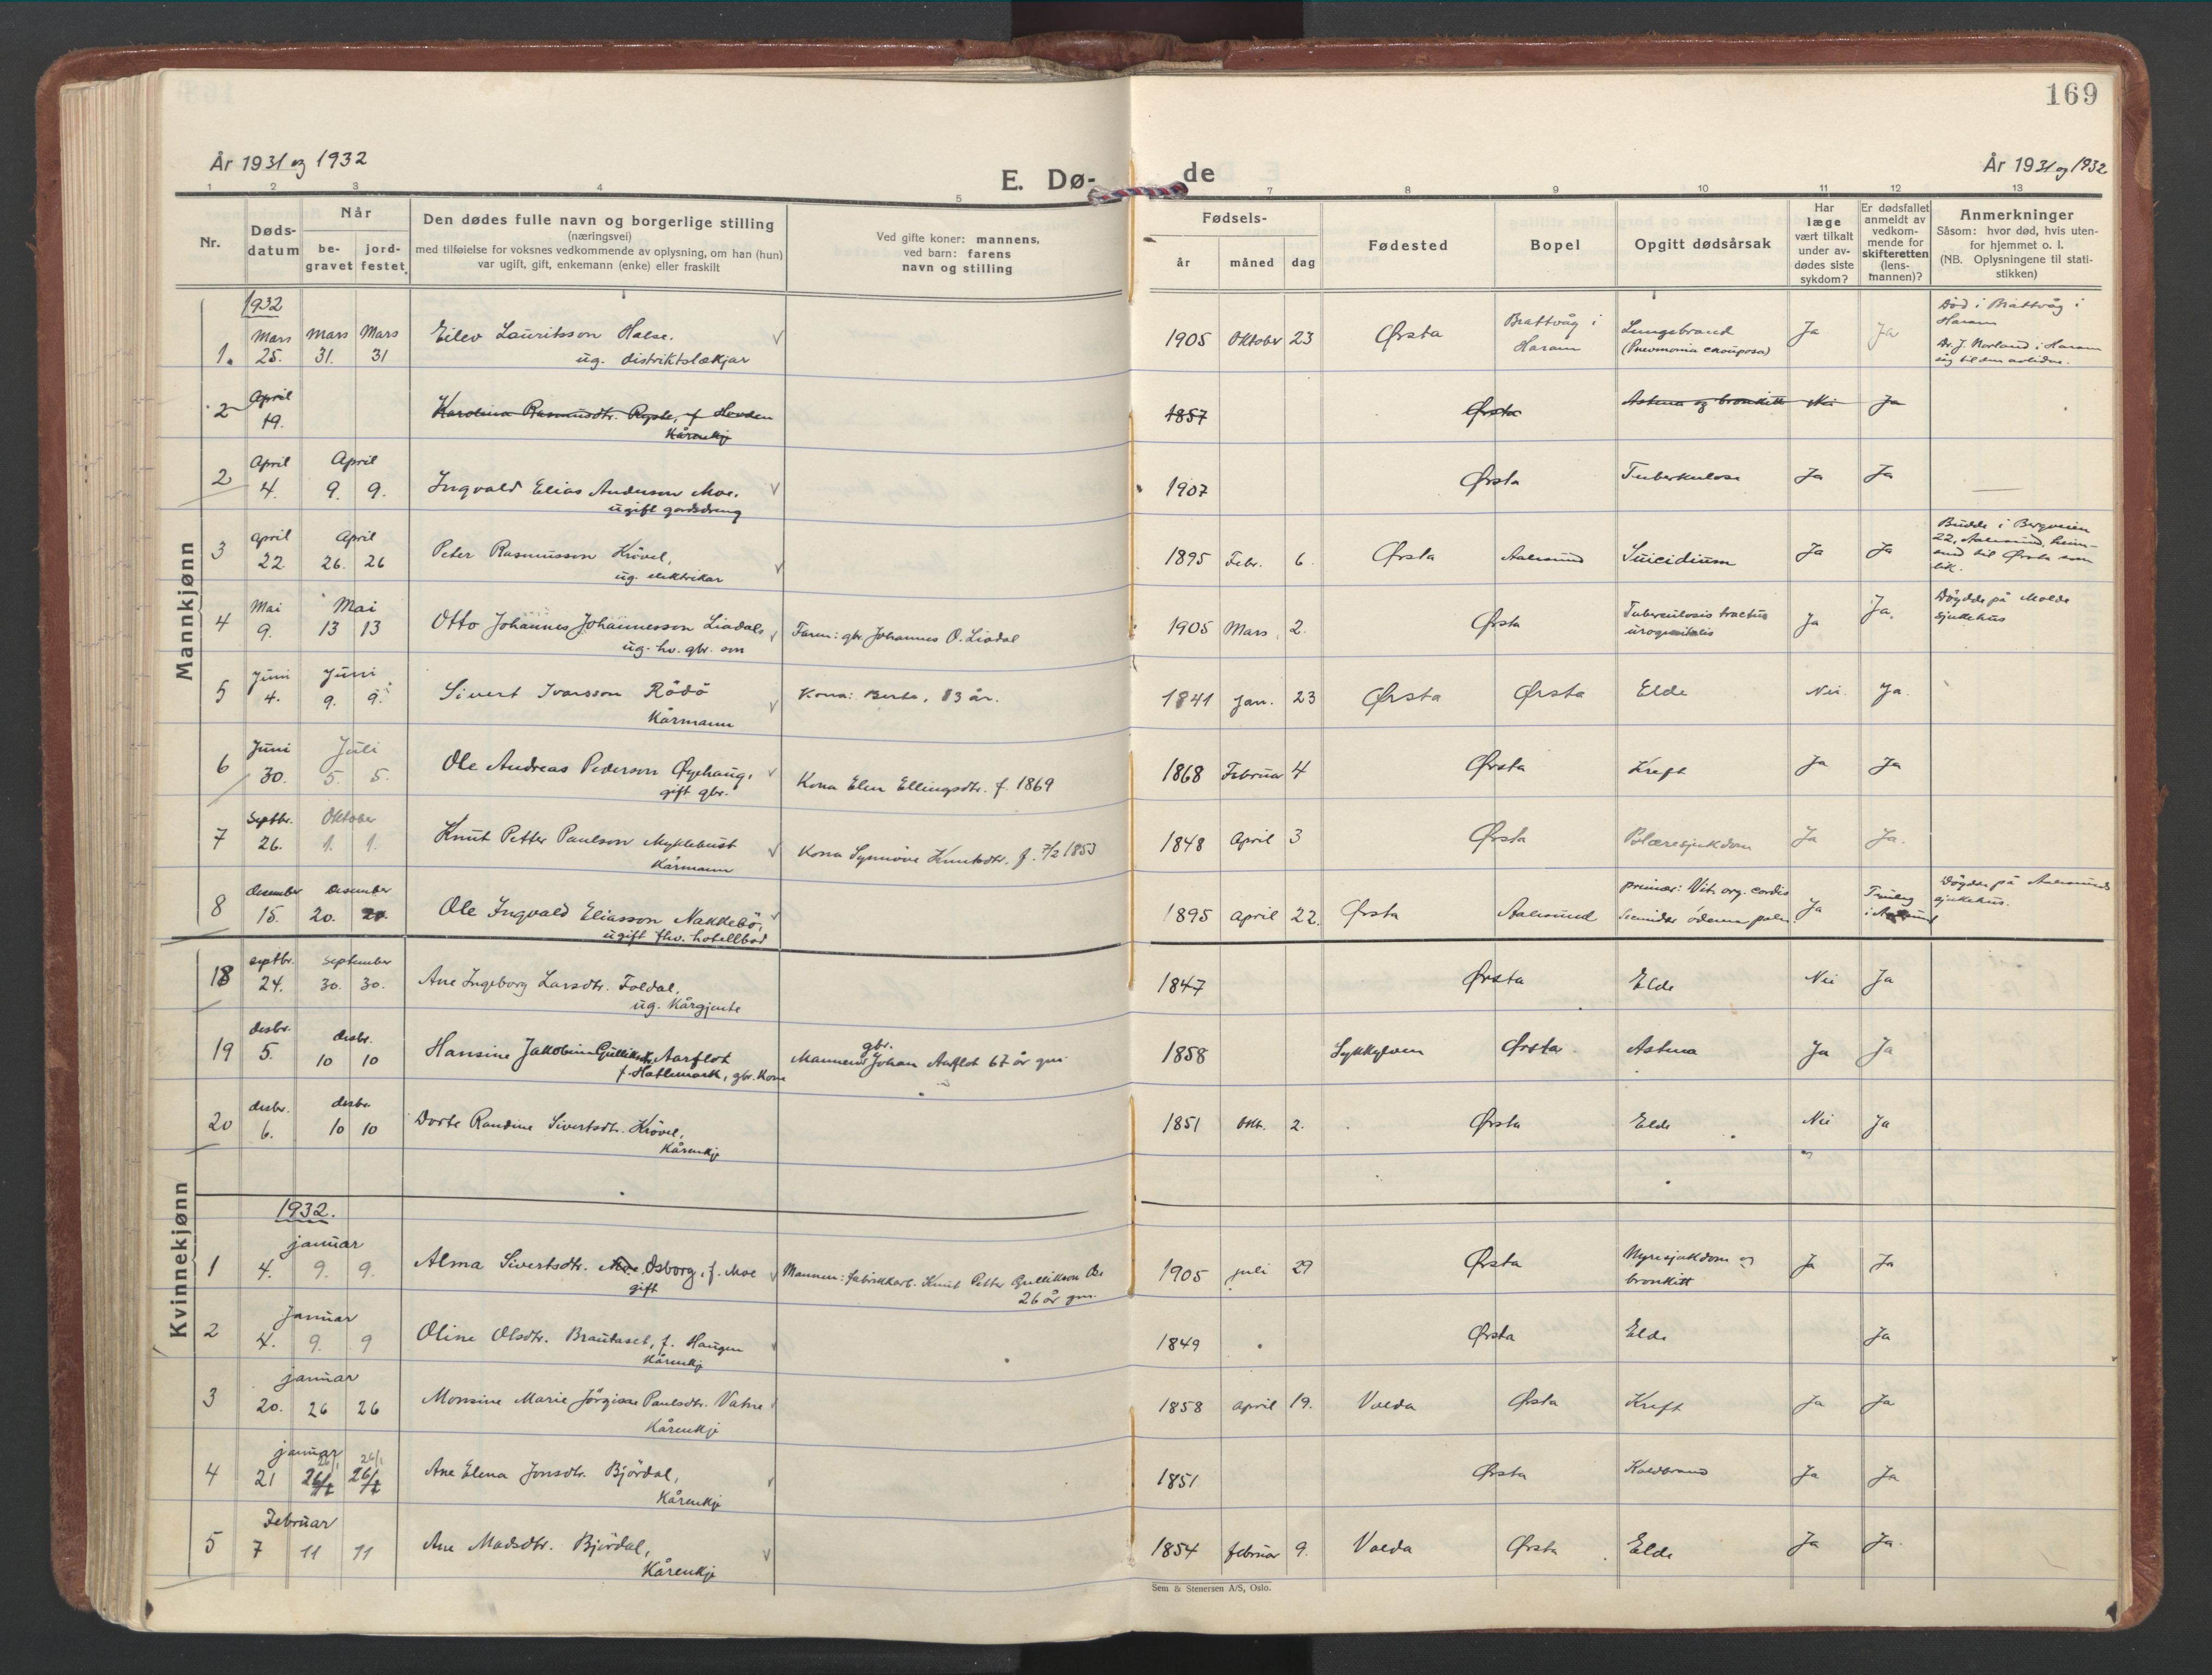 169
År 1931 og 1932
E. Dø-
de
År 1931 og 1932
1 2 3 4 5 7 8 9 10 11 12 13
Nr.
Døds-
datum
Når
be-
gravet
jord-
festet
Den dødes fulle navn og borgerlige stilling
(næringsvei)
med tilføielse for voksnes vedkommende av oplysning, om han (hun)
var ugift, gift, enkemann (enke) eller fraskilt
Ved gifte koner: mannens,
ved barn: farens
navn og stilling
Fødsels-
år måned dag
Fødested
Bopel
Opgitt dødsårsak
Har
læge
vært tilkalt
under av-
dødes siste
sykdom?
Er dødsfallet
anmeldt av
vedkom-
mende for
skifteretten
(lens-
mannen)?
Anmerkninger
Såsom: hvor død, hvis uten-
for hjemmet o. l.
(NB. Oplysningene til stati-
stikken)
Mannkjønn
1932
Mars Mars Mars Eilev Lauritsson Halse.
1. 25. 31. 31 ug. distriktslækjar
1905 Oktober 23 Ørsta Brattvåg i Haram Lungebrand
(Pneumonia crouposa) Ja Ja
Död i Brattvåg i
Haram
Dr. J. Norland i Haram
såg til den avlidne.
2 April
19. Karolina Rasmusdtr. Ryste, f. Hovden
Kårenkj
1857 Ørsta Astma og bronkitt Nei Ja
2 April April
4. 9. 9. Ingvald Elias Anderson Moe.
ugift gardsdreng
1907 Ørsta Tuberkulose Ja Ja
3 April April
22 26. 26 Peter Rasmusson Krövel,
ug. elektrikar
1895 Febr. 6. Ørsta Aalesund Suicidium Ja Ja
Budde i Bergveien
22, Aalesund, heim-
send til Ørsta som
lik.
4 Mai Mai
9. 13 13 Otto Johannes Johannesson Liadal
ug. hv. gbr. son
Faren: gbr. Johannes O. Liadal
1905 Mars 2. Ørsta Tuberculosis tractus
urogenitalis Ja Ja.
Döydde på Molde
sjukehus
5 Juni Juni
4. 9. 9. Sivert Ivarsson Rödö
Kårmann
Kona: Berta, 83 år.
1841 Jan. 23 Ørsta Ørsta Elde Nei. Ja.
6 Juni Juli
30. 5. 5. Ole Andreas Pederson Øyehaug,
gift gbr.
Kona Elen Ellingsdtr. f. 1869
1868 Februar 4 Ørsta Kreft Ja Ja
7 Septbr. Oktober
26. 1. 1. Knut Petter Paulson Myklebust
Kårmann
Kona Synnöve Knutsdtr. f. 7/2 1853
1848 April 3 Ørsta Blæresjukdom Ja Ja.
8 desember desember
15. 20. 20. Ole Ingvald Eliasson Nakkebö,
ugift fhv. hotellbud
1895 April 22. Ørsta Aalesund primær: Vit. org. cordis
Secundær ödema pulm. Ja
Döydde på Aalesunds
sjukehus.
Kvinnekjønn
18 septbr. september
24. 30. 30. Ane Ingeborg Larsdtr. Foldal,
ug. Kårgjente
1847 Ørsta Elde Nei Ja
19 desbr. desbr.
5. 10 10 Hansine Jakobine Gulliksdtr. Aarflot
f. Hatlemark, gbr. Kone
gbr.
Mannen: Johan Aarflot 67 år gm.
1858 Sykkylven Ørsta Astma Ja Ja
20 desbr. desbr
6. 10 10 Dorte Randine Sivertsdtr. Krövel,
Kårenkje
1851 Okt. 2. Ørsta Elde Nei Ja
1932.
1 januar
4. 9. 9. Alma Sivertsdtr. Moe Osborg, f. Moe
gift
Mannen: fabrikkarb. Knut Petter Gullikson
26 år gm.
1905 juli 29 Ørsta Nyresjukdom og
bronkitt Ja Ja
2 Januar
4. 9. 9 Oline Olsdtr. Brautaset, f. Haugen
Kårenkj
1849 Ørsta Elde Ja
3 januar
20. 26 26 Monsine Marie Jörgine Paulsdtr. Vatne
Kårenkje
1858 April 19. Volda Ørsta Kreft Ja Ja
4 januar
21 26/1 26/1 Ane Elena Jonsdtr. Björdal,
Kårenkje
1851 Ørsta Koldbrand Ja Ja
5 Februar
7 11 11 Ane Madsdtr. Björdal,
Kårenkje
1854 februar 9. Volda Ørsta Elde Ja Ja.
Sem & Stenersen A/S, Oslo.